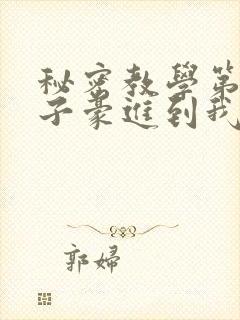 秘密教學第
子豪進到我
郭婦